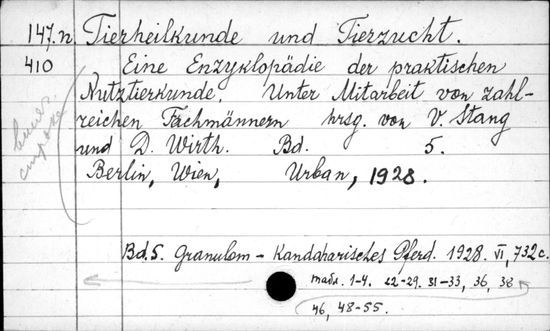 147.n. Tierheilkunde und Tierzucht.
410 Eine Enzyklopädie der praktischen
Nutztierkunde. Unter Mitarbeit von zahl-
reichen Fachmännern hrsg. von V. Stang
und D. Wirth. Bd. 5.
Berlin, Wien, Urban, 1928.
Bd.5. Granulom - Kandaharisches Pferd. 1928. VI, 732 c.
табл. 1-4. 22-29. 31-33, 36, 38
46, 48-55.